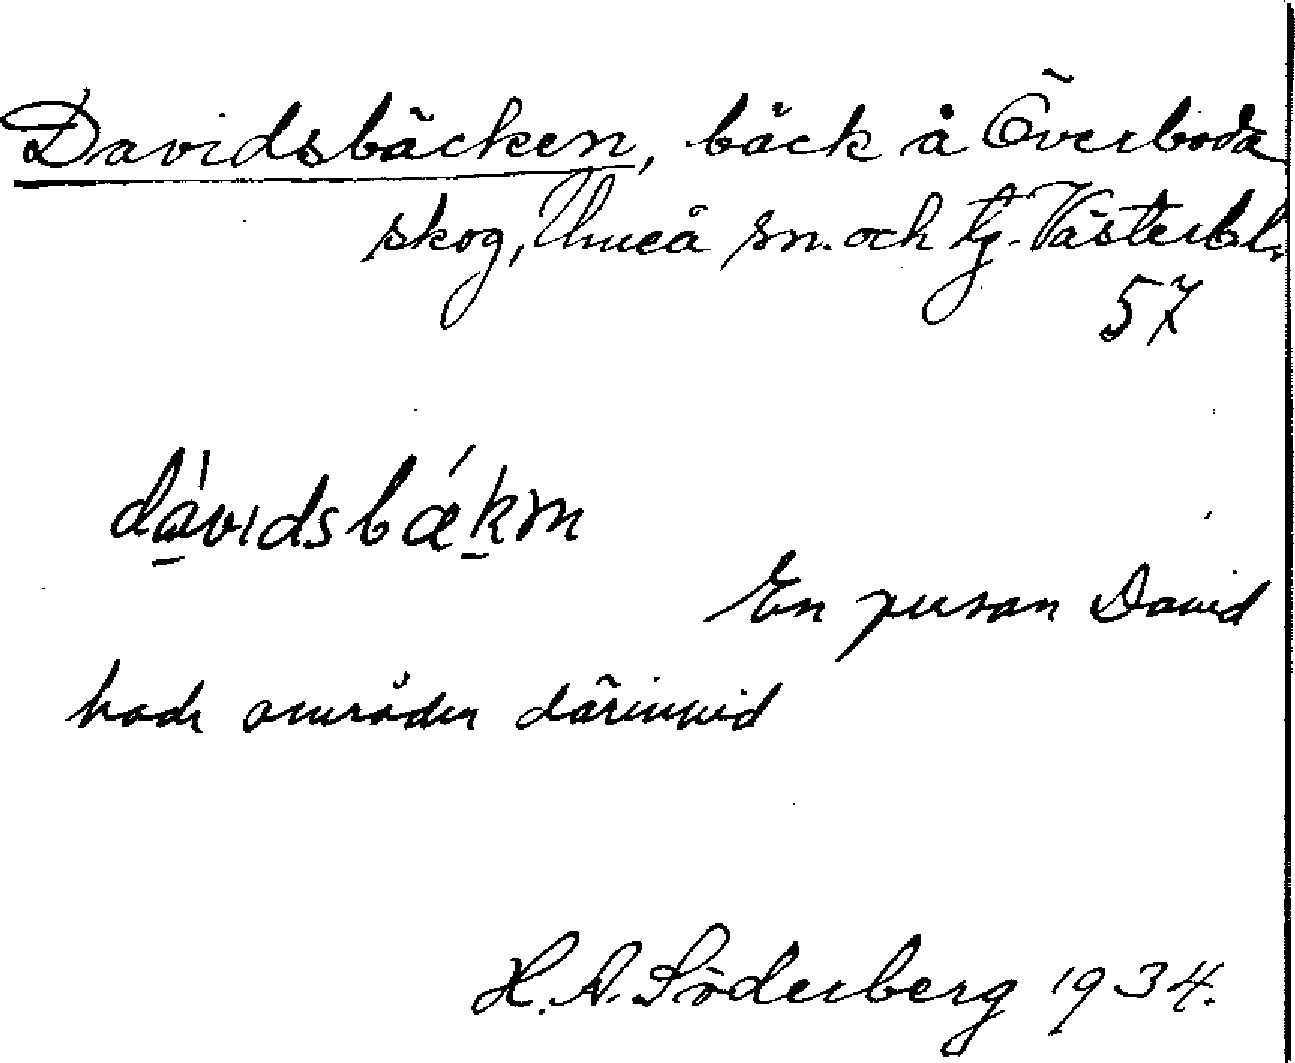 Davidsbäcken, bäck å Överboda
skog, Umeå sn. och tg. Västerbl.
57
dávidsbǽkm
En person David
hade områden därinvid
H. A. Söderberg 1934.